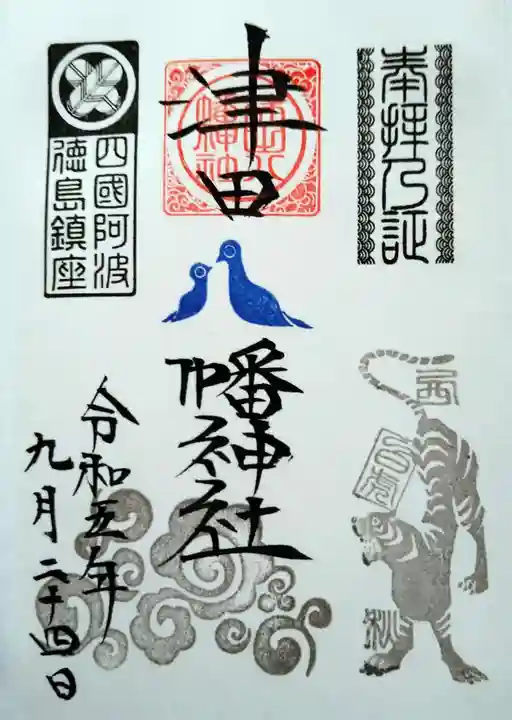 奉拝乃証
津田
幡神社
四國阿波
徳島鎮座
令和五年
九月二十四日
西
白虎
秋